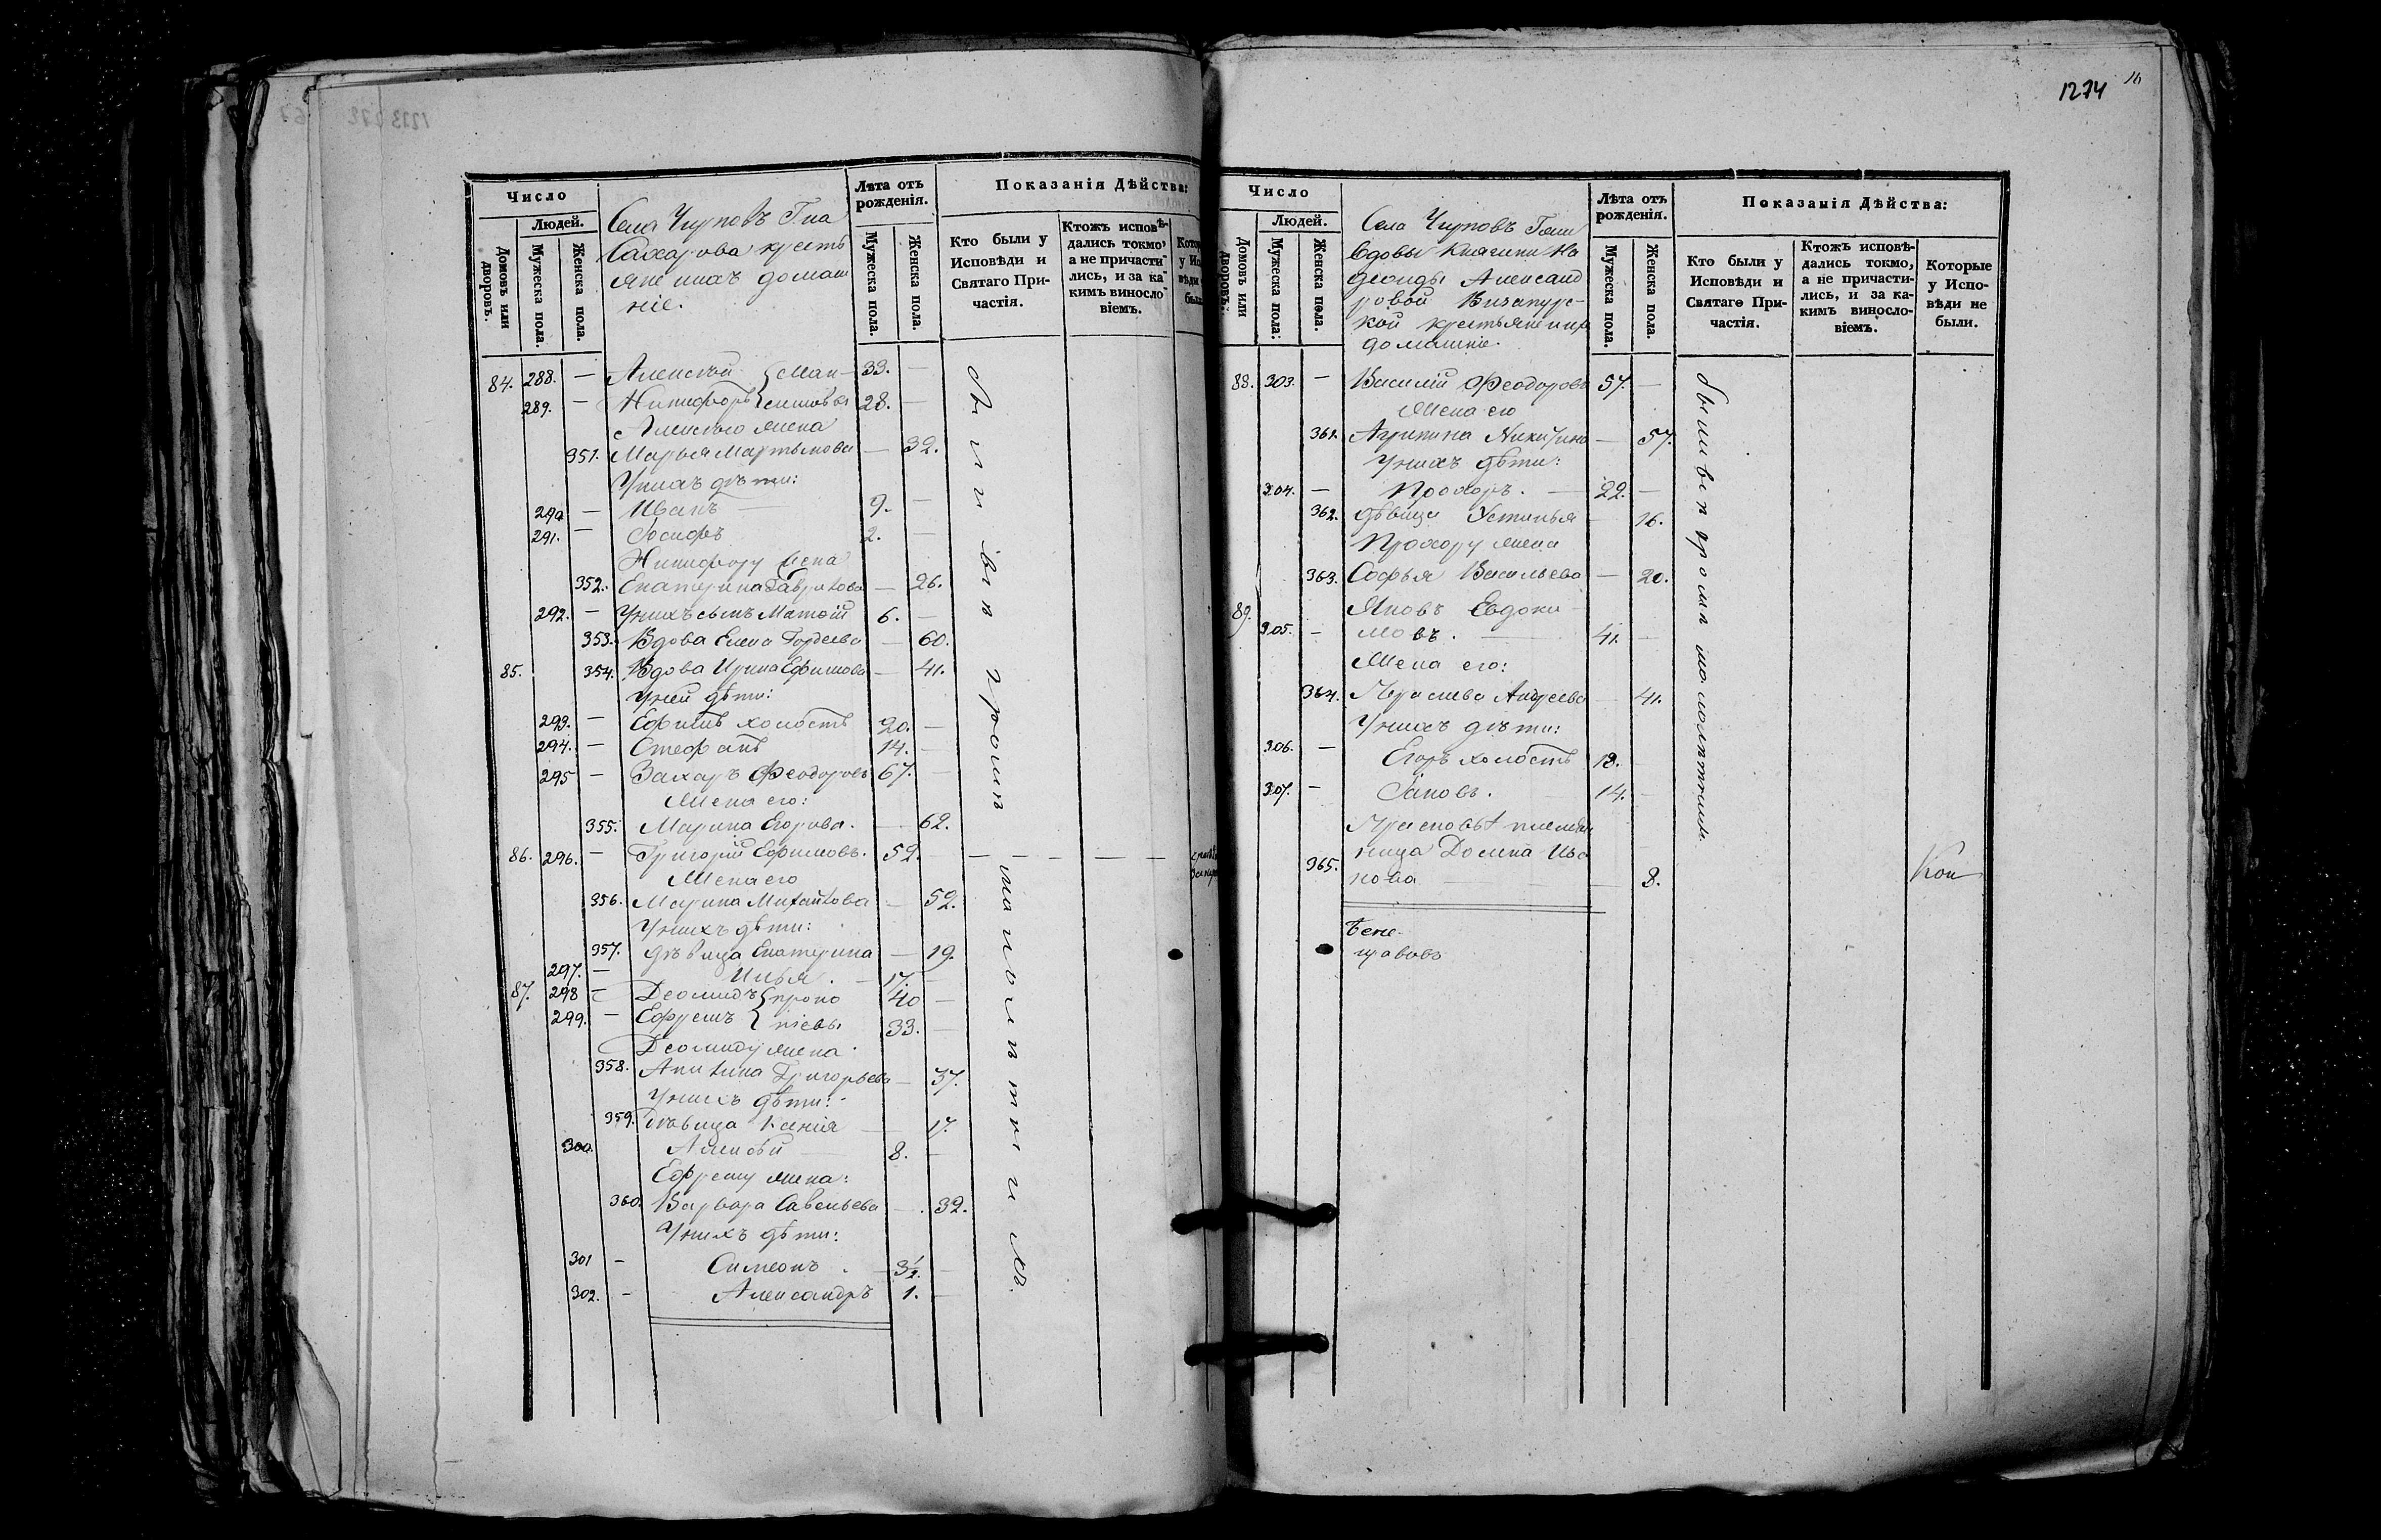 1274
16
Число
Людей.
Домовъ или дворовъ.
Мужеска пола.
Женска пола.
Села Чуповъ Г-на
Сахарова кресть
яне ихъ домаш
ніе.
Лѣта отъ рожденія.
Мужеска пола.
Женска пола.
Показанія Дѣйства:
Кто были у Исповѣди и Святаго Причастія.
Ктожъ исповѣдались токмо, а не причастились, и за какимъ винословіемъ.
84. 288. — Алексѣй 33. —
289. — Никифоръ 28. —
Алексѣю жена
351. Марья Мартынова — 32.
У нихъ дѣти:
290 — Иванъ — 9. —
291. — Іосифъ 2. —
Никифору жена
352. Екатерина Гаврилова — 26.
292. — У нихъ сынъ Матвій 6. —
353. Вдова Елена Гордеева — 60.
85. 354. Вдова Ирина Ефимова — 41.
У ней дѣти:
293. — Ефимъ холостъ 20. —
294. — Стефанъ 14. —
295 — Захаръ Феодоровъ 67. —
Жена его:
355. Марина Егорова. — 62.
86. 296. — Григорій Ефимовъ. 52. —
Жена его
356. Марина Михайлова — 52.
У нихъ дѣти:
357. дѣвица Екатерина — 19.
297. — Илья. — 17. —
87. 298 — Деомидъ { проко 40 —
299. — Ефремъ } піевы 33. —
Деомиду жена
358. Акилина Григорьева — 37.
У нихъ дѣти:
359. Дѣвица Ксенія — 17.
300. Алексѣй — 8. —
Ефрему жена:
360. Варвара Савельева — 32.
У нихъ дѣти:
301 — Симеонъ. — 3½. —
302. — Александръ 1. —
были вси кроми малолѣтнихъ.
Число
Людей.
Домовъ или дворовъ.
Мужеска пола:
Женска пола.
Села Чуповъ Г-жи
вдовы Княгини На
дежды Александ
ровой
кой крестьяне ихъ
домашніе.
Лѣта отъ рожденія.
Мужеска пола.
Женска пола.
Показанія Дѣйства:
Кто были у Исповѣди и Святаго Причастія.
Ктожъ исповѣдались токмо, а не причастились, и за какимъ винословіемъ.
Которые у Исповѣди не были.
88. 303. — Василій Феодоровъ 57. —
Жена его
361. Агрипина Никитина — 57.
У нихъ дѣти:
304. — Прохоръ. — 22. —
362. дѣвица Устинья — 16.
Прохору жена
363. Софья Васильева — 20.
89. Яковъ Евдоки
305. — мовъ. — 41. —
Жена его:
364. Андреева — 41.
У нихъ дѣти:
306. — Егоръ холостъ 18. —
307. — Іаковъ. 14. —
племян
ница Домна Ива
365. нова — 8.
были вси кроми малолѣтнихъ.